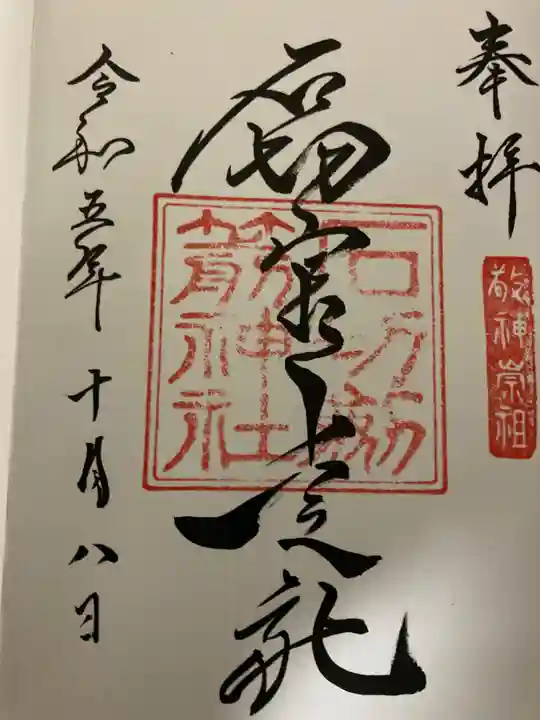 奉拝
敬神崇祖
石切宮上之社
石切劔
箭神社
令和五年十月八日